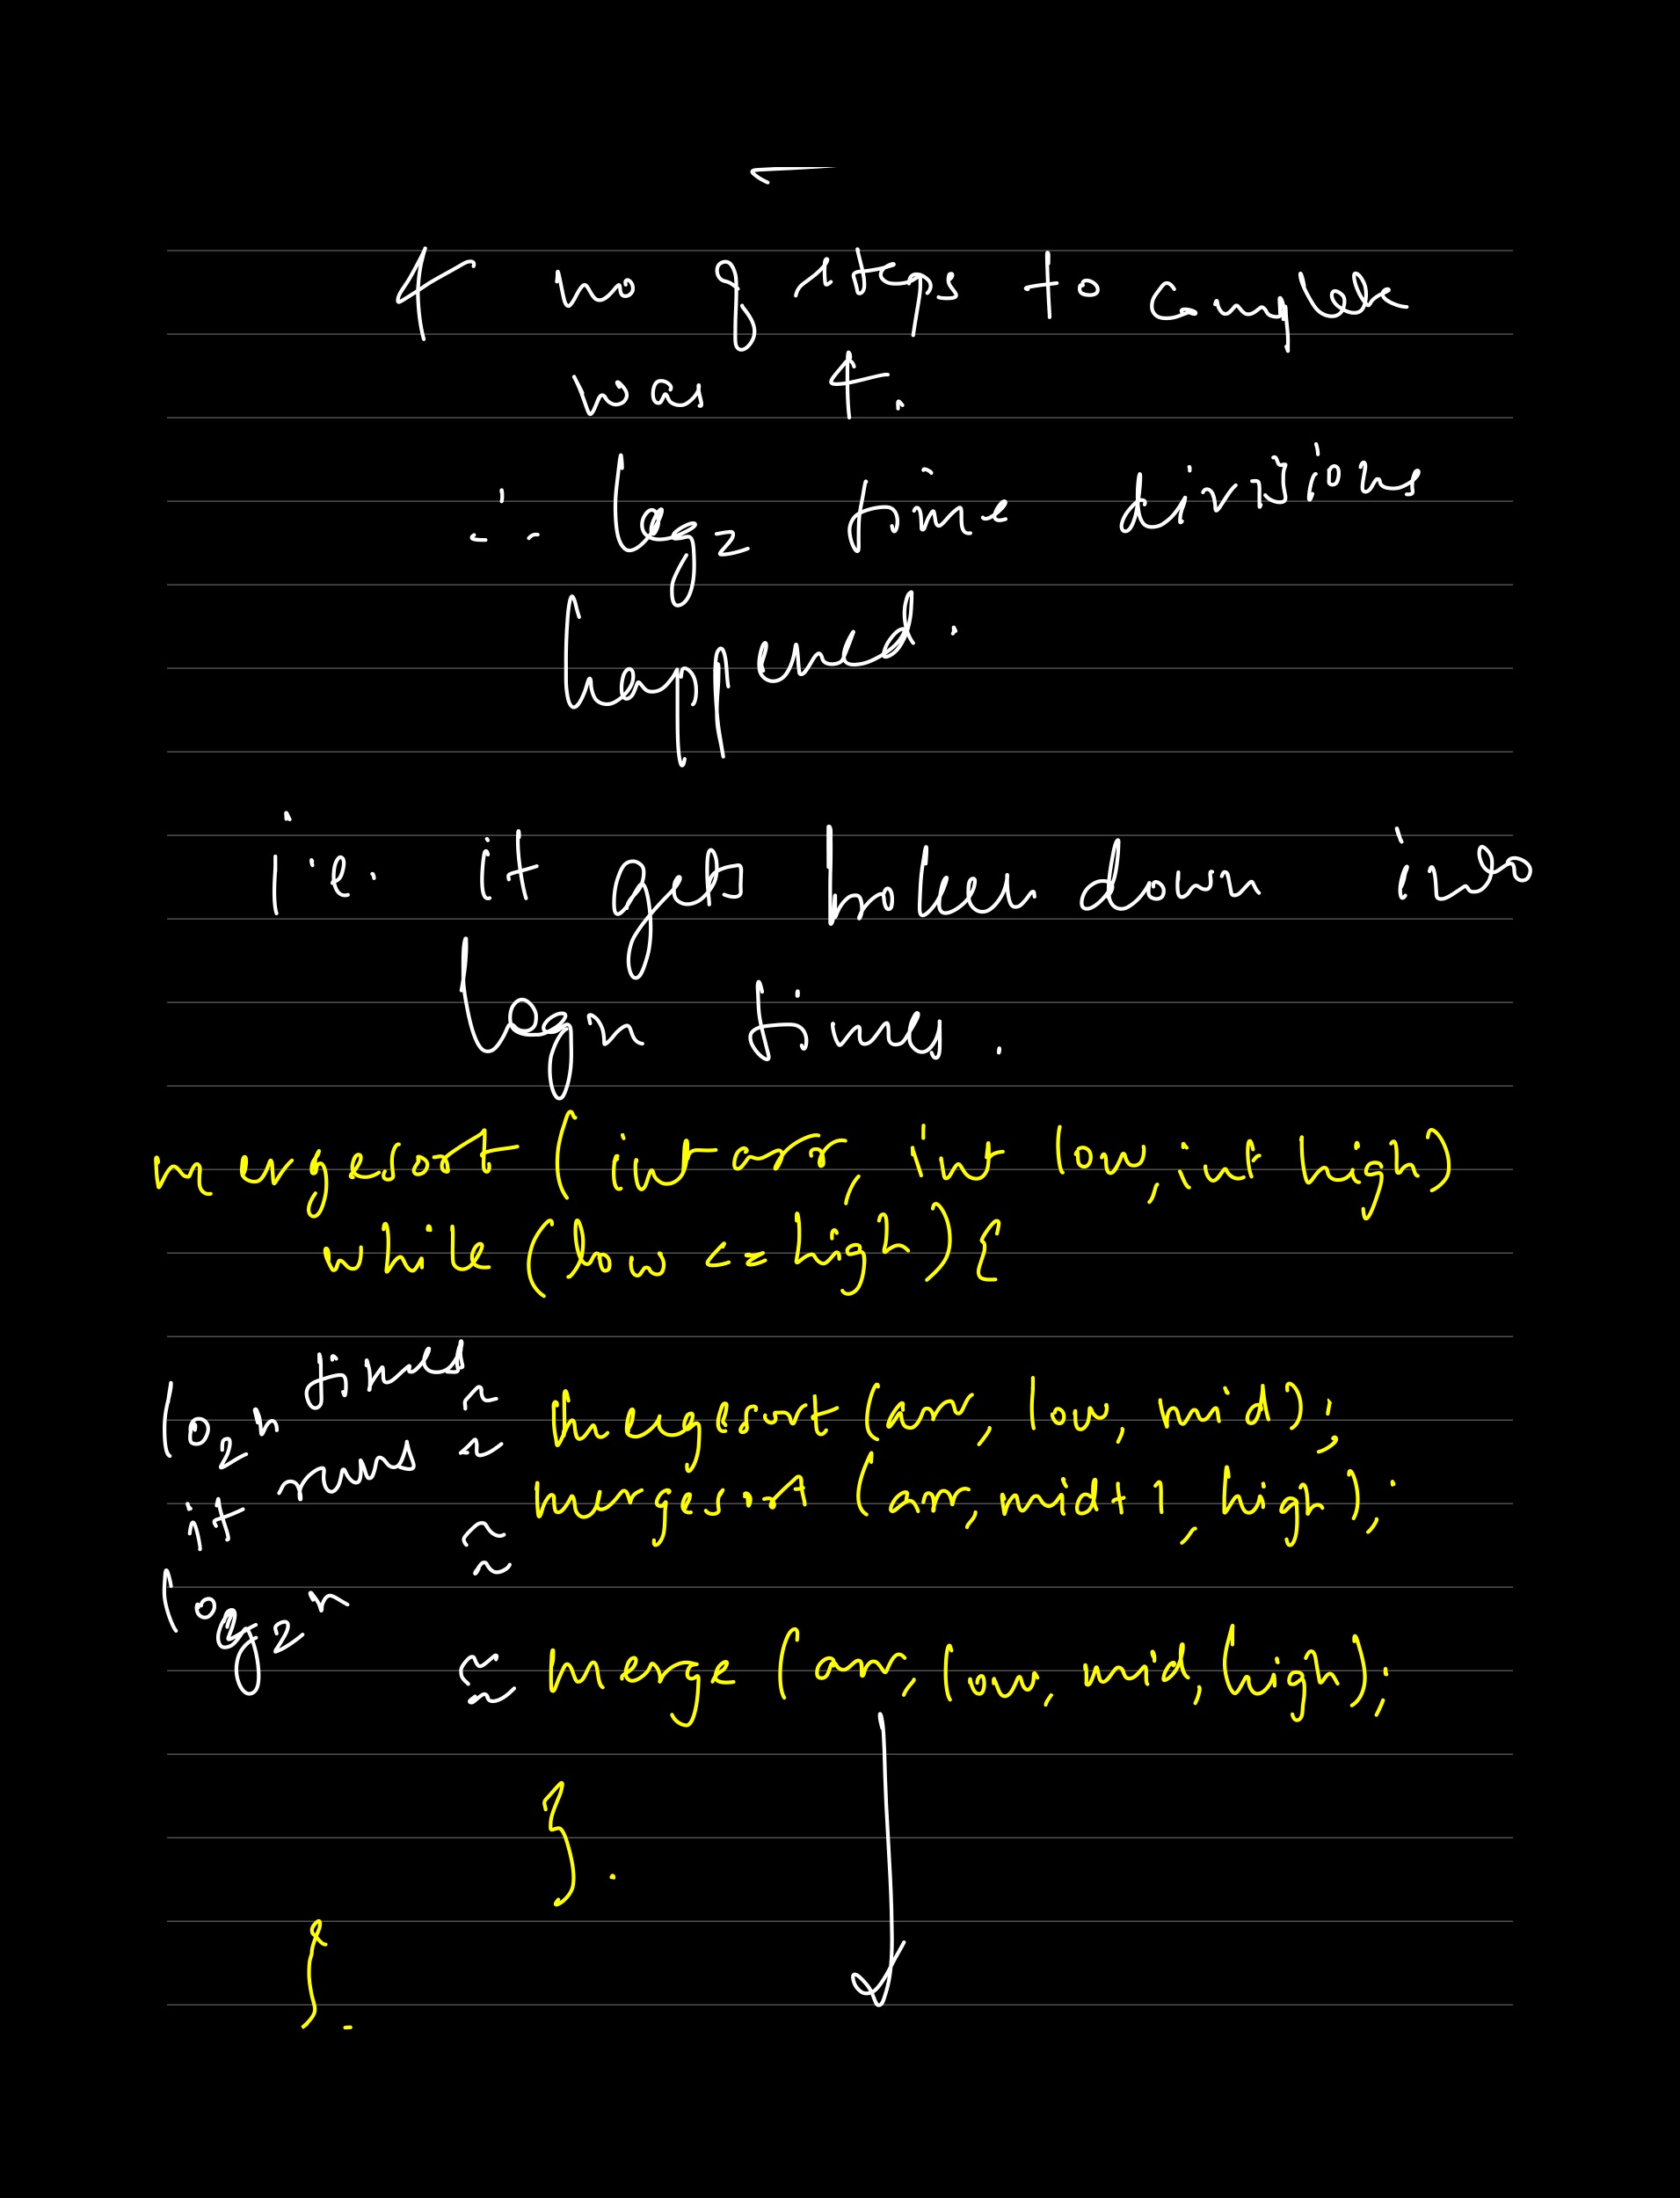 & no of steps to complete
was 4.
∴ log₂ time divisions
happened.
i.e. it gets broken down into
logn times.
mergesort (int arr, int low, int high)
while (low <= high) {
lo₂n times ≈ mergesort (arr, low, mid);
it runs ≈ mergesort (arr, mid+1, high);
log₂n ≈ merge (arr, low, mid, high);
}.
}.